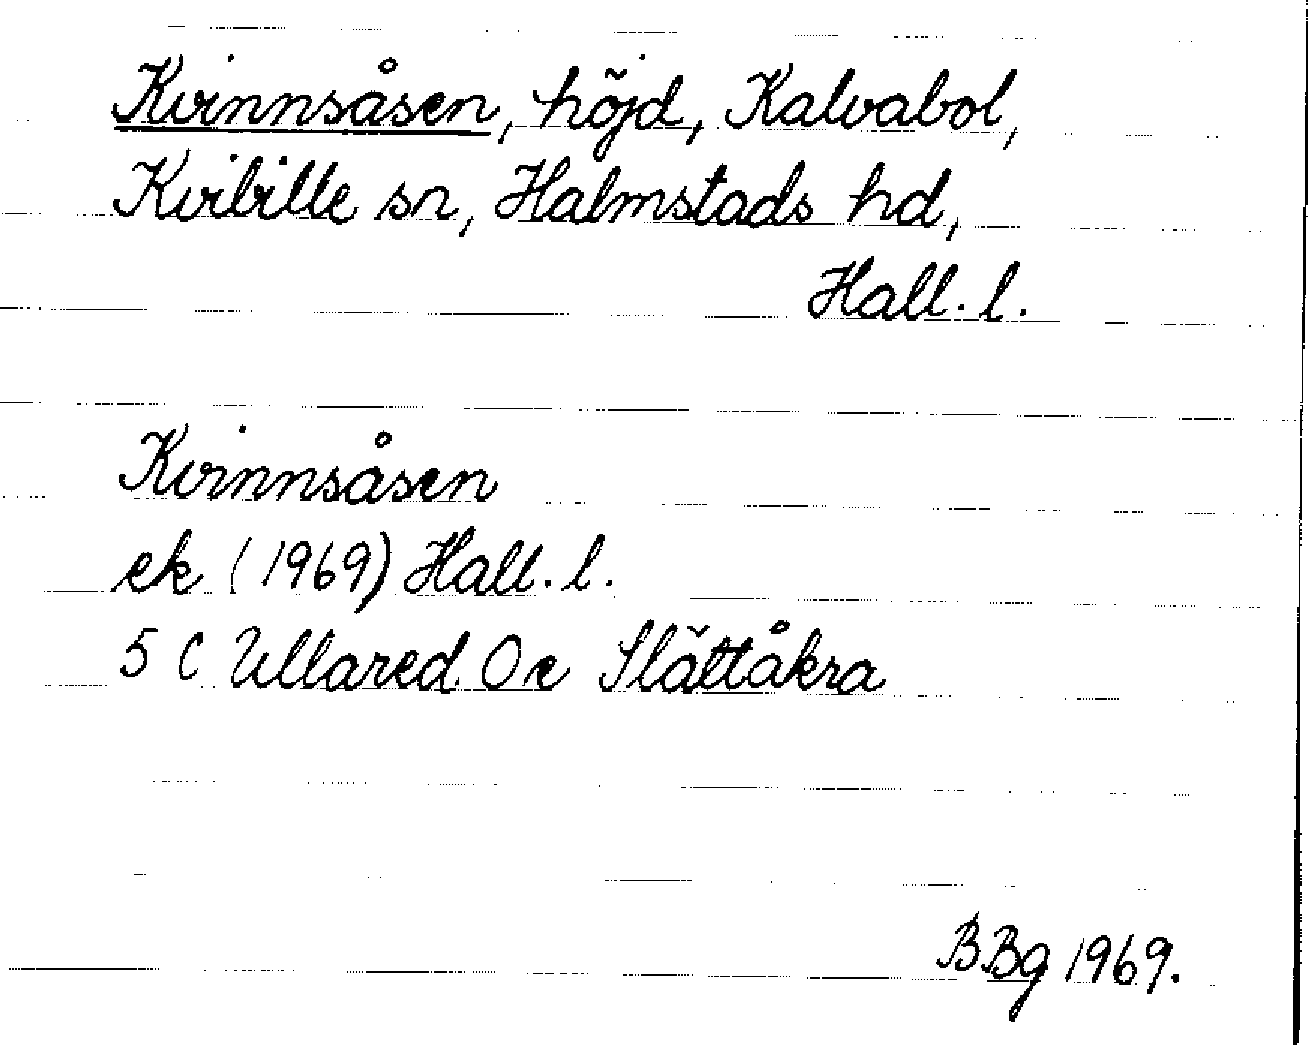 Kvinnsåsen, höjd, Kalvabol,
Kvibille sn, Halmstads hd,
Hall. l.
Kvinnsåsen
ek (1969) Hall. l.
5 C Ullared 0e Slättåkra
BBg 1969.